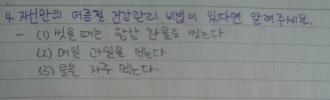 4. 자신만의 여름철 건강관리 비법이 있다면 알려주세요.
- (1) 씻을 때는 항상 찬물로 씻는다
(2) 매일 과일을 먹는다.
(3) 물을 자주 먹는다.